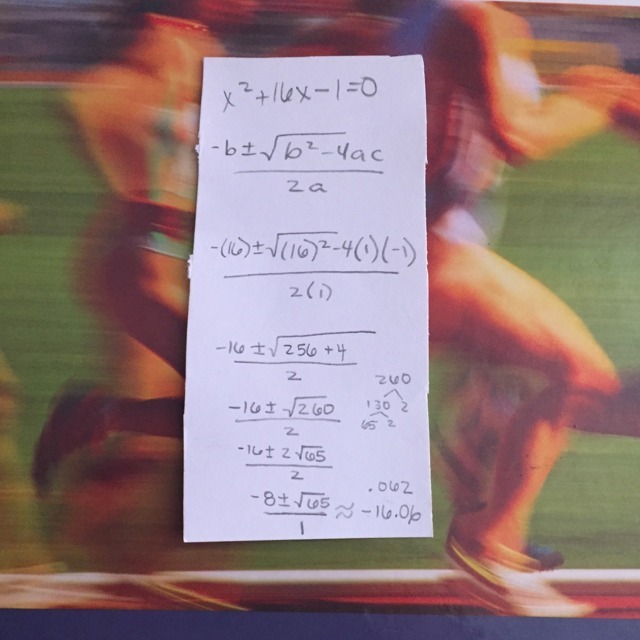 x²+16x-1=0
-b±√b²-4ac
2a
-(16)±√(16)²-4(1)(-1)
2(1)
-16±√256+4
2
260
130 2
65 2
-16±√260
2
-16±2√65
2
-8±√65
1
≈
.062
-16.06